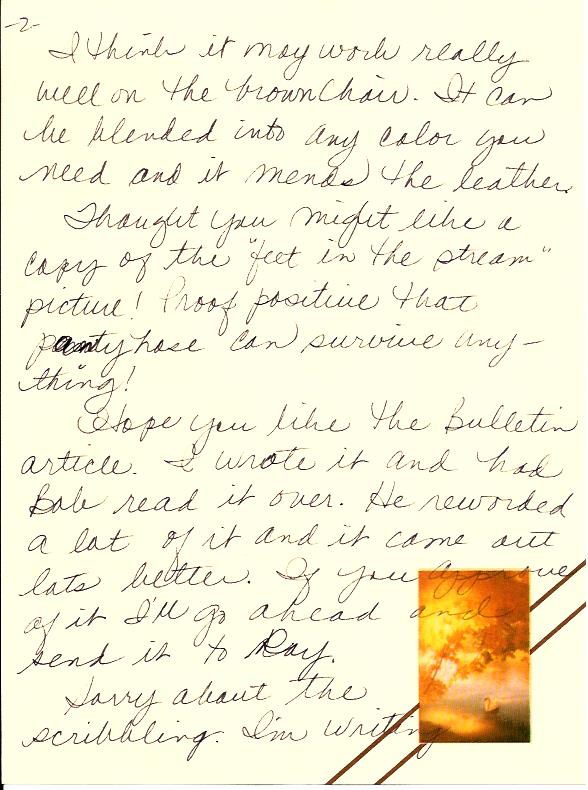 -2-
I think it may work really
well on the brown chair. It can
be blended into any color you
need and it mends the leather.
Thought you might like a
copy of the "feet in the stream"
picture! Proof positive that
pantyhose can survive any-
thing!
Hope you like the Bulletin
article. I wrote it and had
Bob read it over. He reworded
a lot of it and it came out
lots better. If you approve
of it I'll go ahead and
send it to Ray.
Sorry about the
scribbling. I'm writing